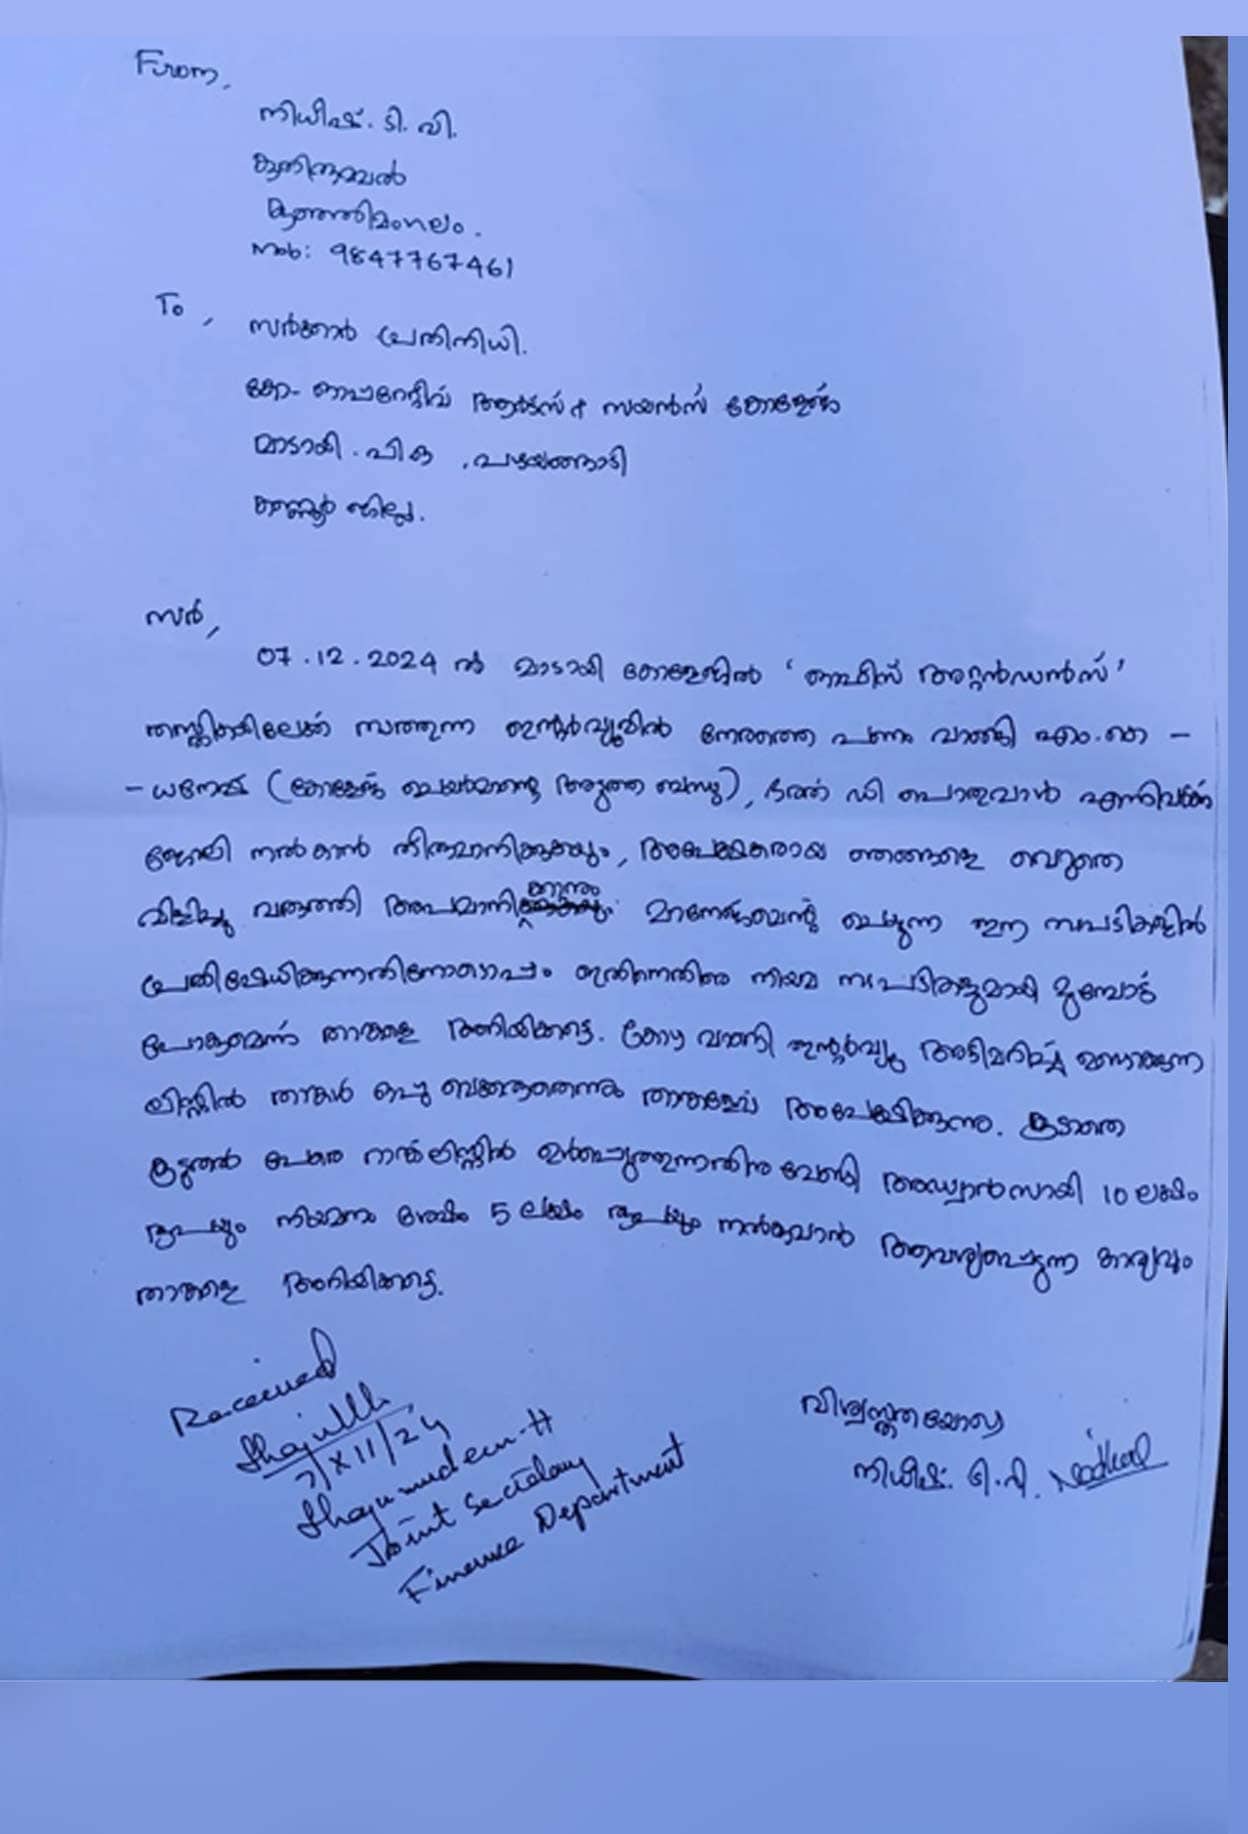 From,
നിധീഷ്. ടി. വി.
കുതിരുമ്മൽ
കുഞ്ഞിമംഗലം.
Mob: 9847767461
To,
സർക്കാർ പ്രതിനിധി.
കോ-ഓപ്പറേറ്റീവ് ആർട്സ് & സയൻസ് കോളേജ്
മാടായി. പി ഒ, പഴയങ്ങാടി
കണ്ണൂർ ജില്ല.
സർ,
07.12.2024 ൽ മാടായി കോളേജിൽ 'ഓഫീസ് അറ്റൻഡൻസ്'
തസ്തികയിലേക്ക് നടത്തുന്ന ഇന്റർവ്യൂവിൽ നേരത്തെ പണം വാങ്ങി എം.കെ -
- ധനേഷ് (കോളേജ് ചെയർമാന്റെ അടുത്ത ബന്ധു), ഭരത് ഡി പൊതുവാൾ എന്നിവർക്ക്
ജോലി നൽകാൻ തീരുമാനിക്കുകയും, അപേക്ഷകരായ ഞങ്ങളെ വെറുതെ
വിളിച്ചു വരുത്തി അപമാനിക്കാനും മാനേജ്മെന്റ് ചെയ്യുന്ന ഈ നടപടികളിൽ
പ്രതിഷേധിക്കുന്നതിനോടൊപ്പം ഇതിനെതിരെ നിയമ നടപടികളുമായി മുമ്പോട്ട്
പോകുമെന്ന് താങ്കളെ അറിയിക്കട്ടെ. കോഴ വാങ്ങി ഇന്റർവ്യൂ അടിമറിച്ച് ഉണ്ടാക്കുന്ന
ലിസ്റ്റിൽ താങ്കൾ ഒപ്പു വെക്കരുതെന്നും താങ്കളോട് അപേക്ഷിക്കുന്നു. കൂടാതെ
കൂടുതൽ പേരെ റാങ്ക് ലിസ്റ്റിൽ ഉൾപ്പെടുത്തുന്നതിനു വേണ്ടി അഡ്വാൻസായി 10 ലക്ഷം
രൂപയും നിയമനം ശേഷം 5 ലക്ഷം രൂപയും നൽകുവാൻ ആവശ്യപ്പെടുന്ന കാര്യവും
താങ്കളെ അറിയിക്കട്ടെ.
വിശ്വസ്തതയോടെ
നിധീഷ്. ടി. വി.
Received
7/XII/24
Shajumudeen.H
Joint Secretary
Finance Department